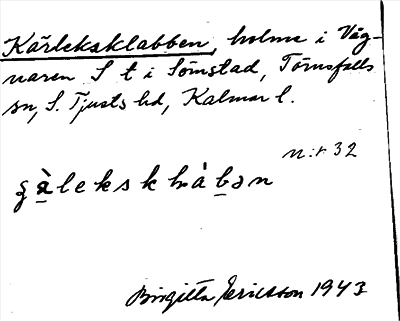 Kärleksklabben, holme i Väg-
naren S t i Sömstad, Törnsfalls
sn, S. Tjusts hd, Kalmar l.
n:r 32
Birgitta Ericsson 1943